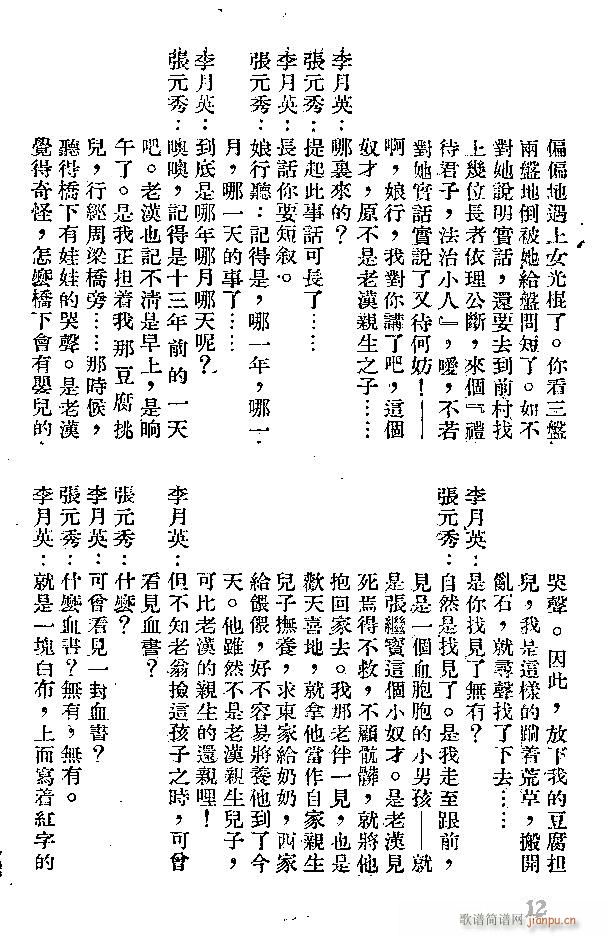 偏偏地遇上女光棍了。你看三盤
兩盤地倒被她給盤問短了。如不
對她說明實話，還要去到前村找
上幾位長者依理公斷，來個『禮
待君子，法治小人』，噯，不若
對她實話實說了又待何妨！——
啊，娘行，我對你講了吧，這個
奴才，原不是老漢親生之子……
李月英：哪裏來的？
張元秀：提起此事話可長了……
李月英：長話你要短敘。
張元秀：娘行聽：記得是，哪一年，哪一
月，哪一天的事了……
李月英：到底是哪年哪月哪天呢？
張元秀：噢噢，記得是十三年前的一天
吧。老漢也記不清是早上，是晌
午了。是我正担着我那豆腐挑
兒，行經周梁橋旁……那時候，
聽得橋下有娃娃的哭聲。是老漢
覺得奇怪，怎麼橋下會有嬰兒的
哭聲。因此，放下我的豆腐担
兒，我是這樣的蹋着荒草，搬開
亂石，就尋聲找了下去……
李月英：是你找見了無有？
張元秀：自然是找見了。是我走至跟前，
見是一個血胞胞的小男孩——就
是張繼寶這個小奴才。是老漢見
死焉得不救，不顧骯髒，就將他
抱回家去。我那老伴一見，也是
歡天喜地，就拿他當作自家親生
兒子撫養，求東家給奶奶，西家
給餵餵，好不容易將養他到了今
天。他雖然不是老漢親生兒子，
可比老漢的親生的還親哩！
李月英：但不知老翁撿這孩子之時，可曾
看見血書？
張元秀：什麼？
李月英：可曾看見一封血書？
張元秀：什麼血書？無有，無有。
李月英：就是一塊白布，上面寫着紅字的
12
歌谱简谱网
jianpu.cn